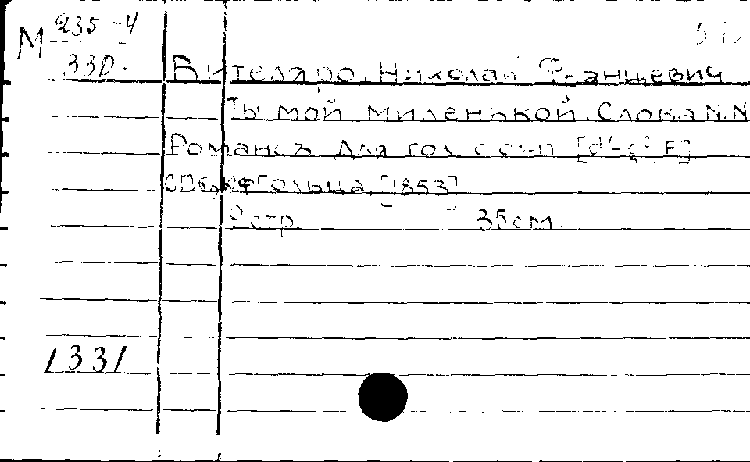 М 235-4
330.
Вителяро, Николай Францевич
Ты мой миленькой. Слова N.N
Романс для гол. с ф-п [d'-g² F]
СПб, Гольца, [1853]
стр. 35 см
1331